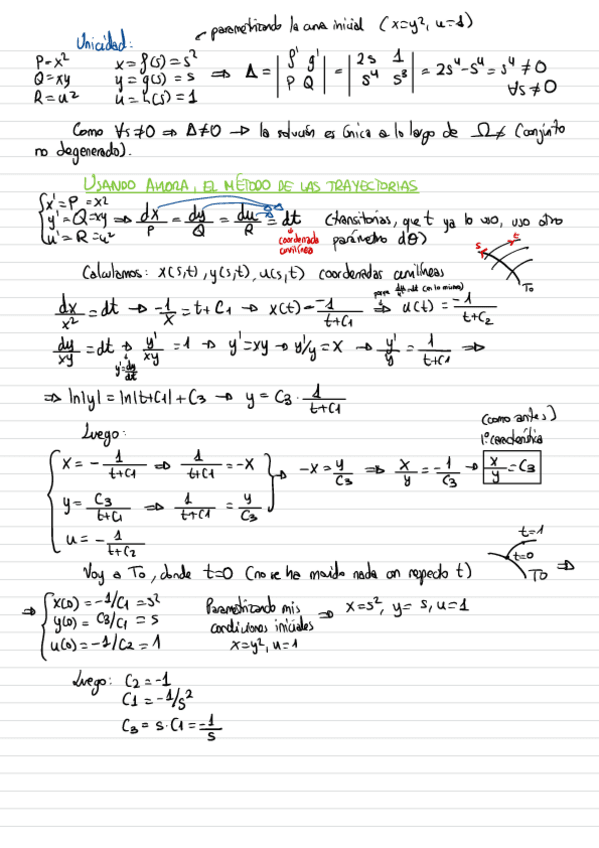 Unicidad: parametrizando la curva inicial (x=y², u=1)
P=x² x=f(s)=s²
Q=xy y=g(s)=s ⇒ Δ = |f' g'; P Q| = |2s 1; s⁴ s³| = 2s⁴-s⁴=s⁴≠0
R=u² u=h(s)=1 ∀s≠0
Como ∀s≠0 ⇒ Δ≠0 → la solución es única a lo largo de Ω≠ (conjunto
no degenerado).
USANDO AHORA, EL MÉTODO DE LAS TRAYECTORIAS
{x'=P=x²
y'=Q=xy ⇒ dx/P = dy/Q = du/R = dt (transitorias, que t ya lo uso, uso otro
u'=R=u² coordenada curvilínea parámetro dθ)
s t To
Calculamos: x(s,t), y(s,t), u(s,t) coordenadas curvilíneas
dx/x² = dt → -1/x = t+C1 → x(t) = -1/(t+C1) ⇒ u(t) = -1/(t+C2)
dy/xy = dt → y'/xy = 1 → y'=xy → y'/y = x → y'/y = 1/(t+C1) ⇒
y'=dy/dt
⇒ ln|y| = ln|t+C1| + C3 → y = C3 · 1/(t+C1)
Luego: (como antes)
1ª característica
{x = -1/(t+C1) ⇒ 1/(t+C1) = -x
y = C3/(t+C1) ⇒ 1/(t+C1) = y/C3 } → -x = y/C3 ⇒ x/y = -1/C3 → x/y = C3
u = -1/(t+C2)
t=1
t=0
Voy a To, donde t=0 (no se ha movido nada con respecto t) To ⇒
⇒ {x(0) = -1/C1 = s² Parametrizando mis ⇒ x=s², y=s, u=1
y(0) = C3/C1 = s condiciones iniciales
u(0) = -1/C2 = 1 x=y², u=1
Luego: C2 = -1
C1 = -1/s²
C3 = s·C1 = -1/s